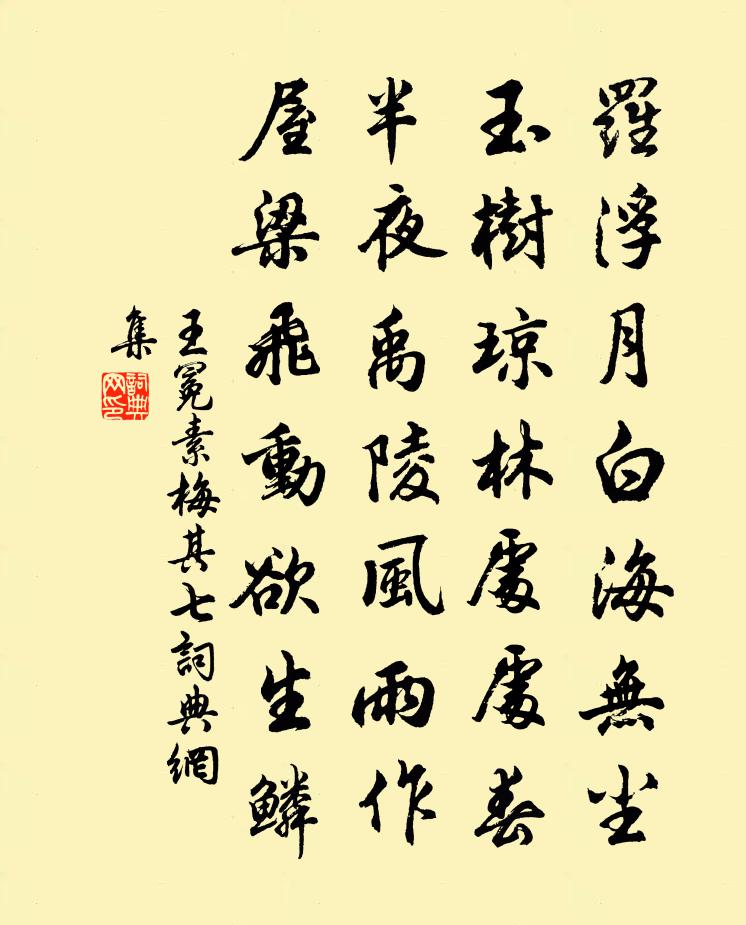 羅浮月白海無塵
玉樹琼林處處春
半夜禹陵風雨作
屋梁飛動欲生鱗
王冕素梅其七詞典網
集
詞典网印